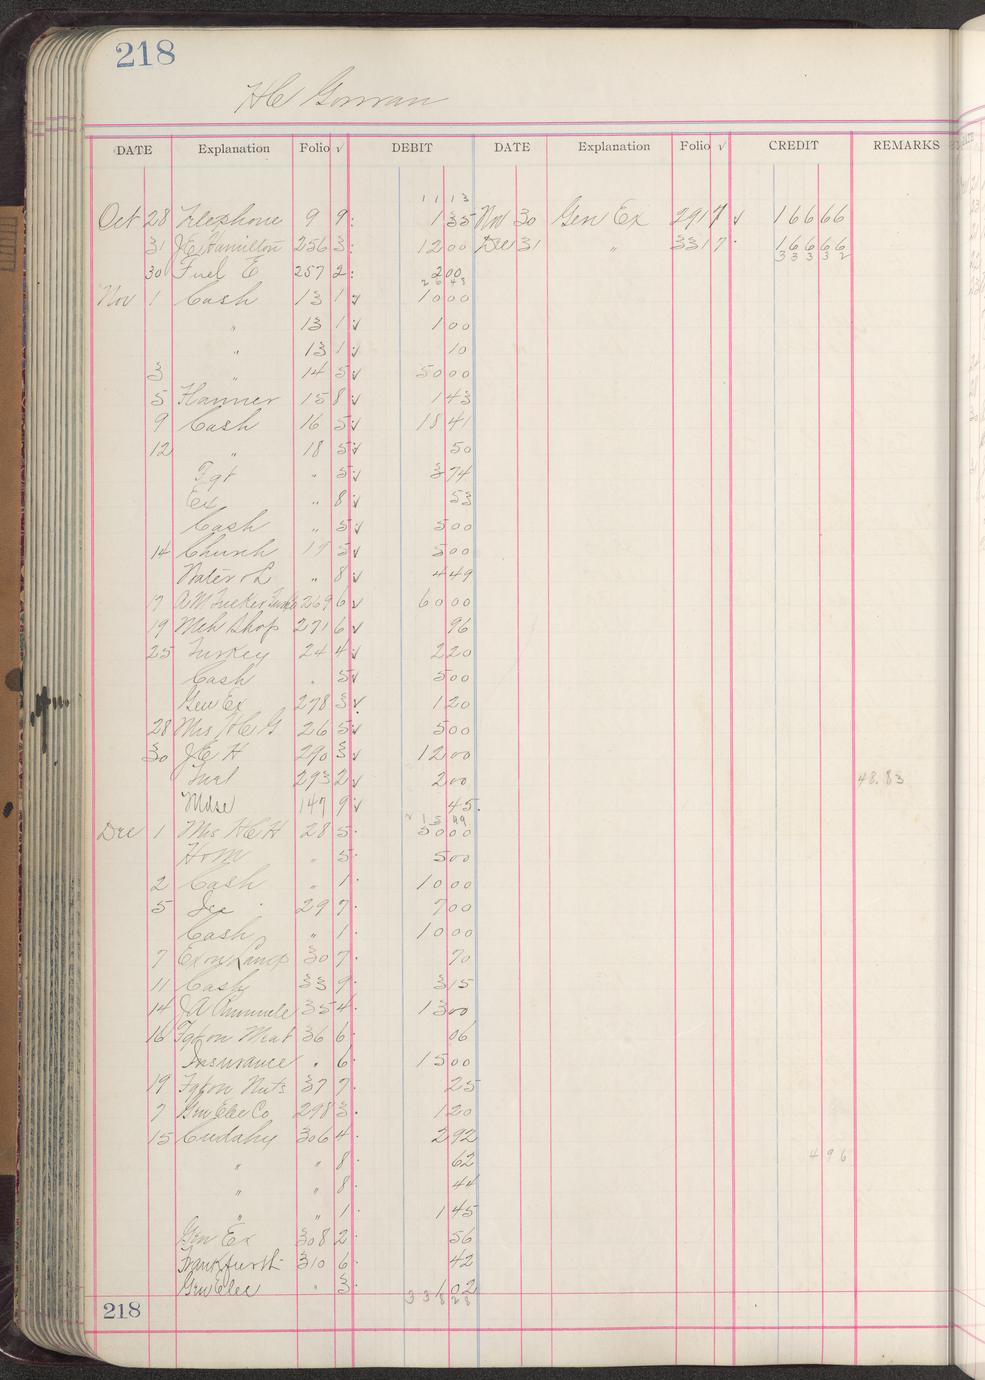 218
HC Gorman
DATE Explanation Folio √ DEBIT DATE Explanation Folio √ CREDIT REMARKS
11 13
Oct 28 Telephone 9 9 1 35 Nov 30 Gen Ex 291 7 √ 166 66
31 J E Hamilton 256 3 12 00 Dec 31 " 331 7 166 66
333 32
30 Fuel E 257 2 2 00
26 48
Nov 1 Cash 13 1 √ 10 00
" 13 1 √ 1 00
" 13 1 √ 10
3 " 14 5 √ 50 00
5 Hanner 15 8 √ 1 43
9 Cash 16 5 √ 18 41
12 " 18 5 √ 50
Fgt " 5 √ 3 74
Ex " 8 √ 53
Cash " 5 √ 5 00
14 Church 19 5 √ 5 00
Water & L " 8 √ 4 49
17 A M Tucker 269 6 √ 60 00
19 Meh Shop 271 6 √ 96
25 Turkey 24 4 √ 2 20
Cash " 5 √ 5 00
Gen Ex 278 3 √ 1 20
28 Mrs H C G 26 5 √ 5 00
30 J E H 290 3 √ 12 00
Fuel 293 2 √ 2 00 48.83
Mdse 147 9 √ 45
215 49
Dec 1 Mrs H C H 28 5 50 00
Hom " 5 5 00
2 Cash " 1 10 00
5 Ice 29 7 7 00
Cash " 1 10 00
7 Ex on Lamp 30 7 70
11 Cash 33 9 3 15
14 J A 35 4 13 00
16 Fgt on Meat 36 6 06
Insurance " 6 15 00
19 Fgt on Nuts 37 7 25
7 Gen Elec Co 298 3 1 20
15 Cudahy 306 4 2 92
" " 8 62 4 96
" " 8 44
" " 1 1 45
Gen Ex 308 2 56
Frankfurth 310 6 42
Gen Elec " 3 1 02
338 28
218